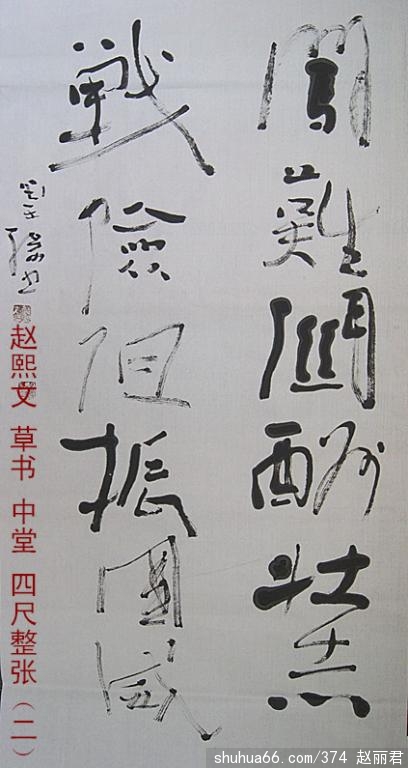 闖難關酬壯志
戰險阻振國威
赵熙文 草书 中堂 四尺整张（二）
shuhua66.com/374 赵丽君